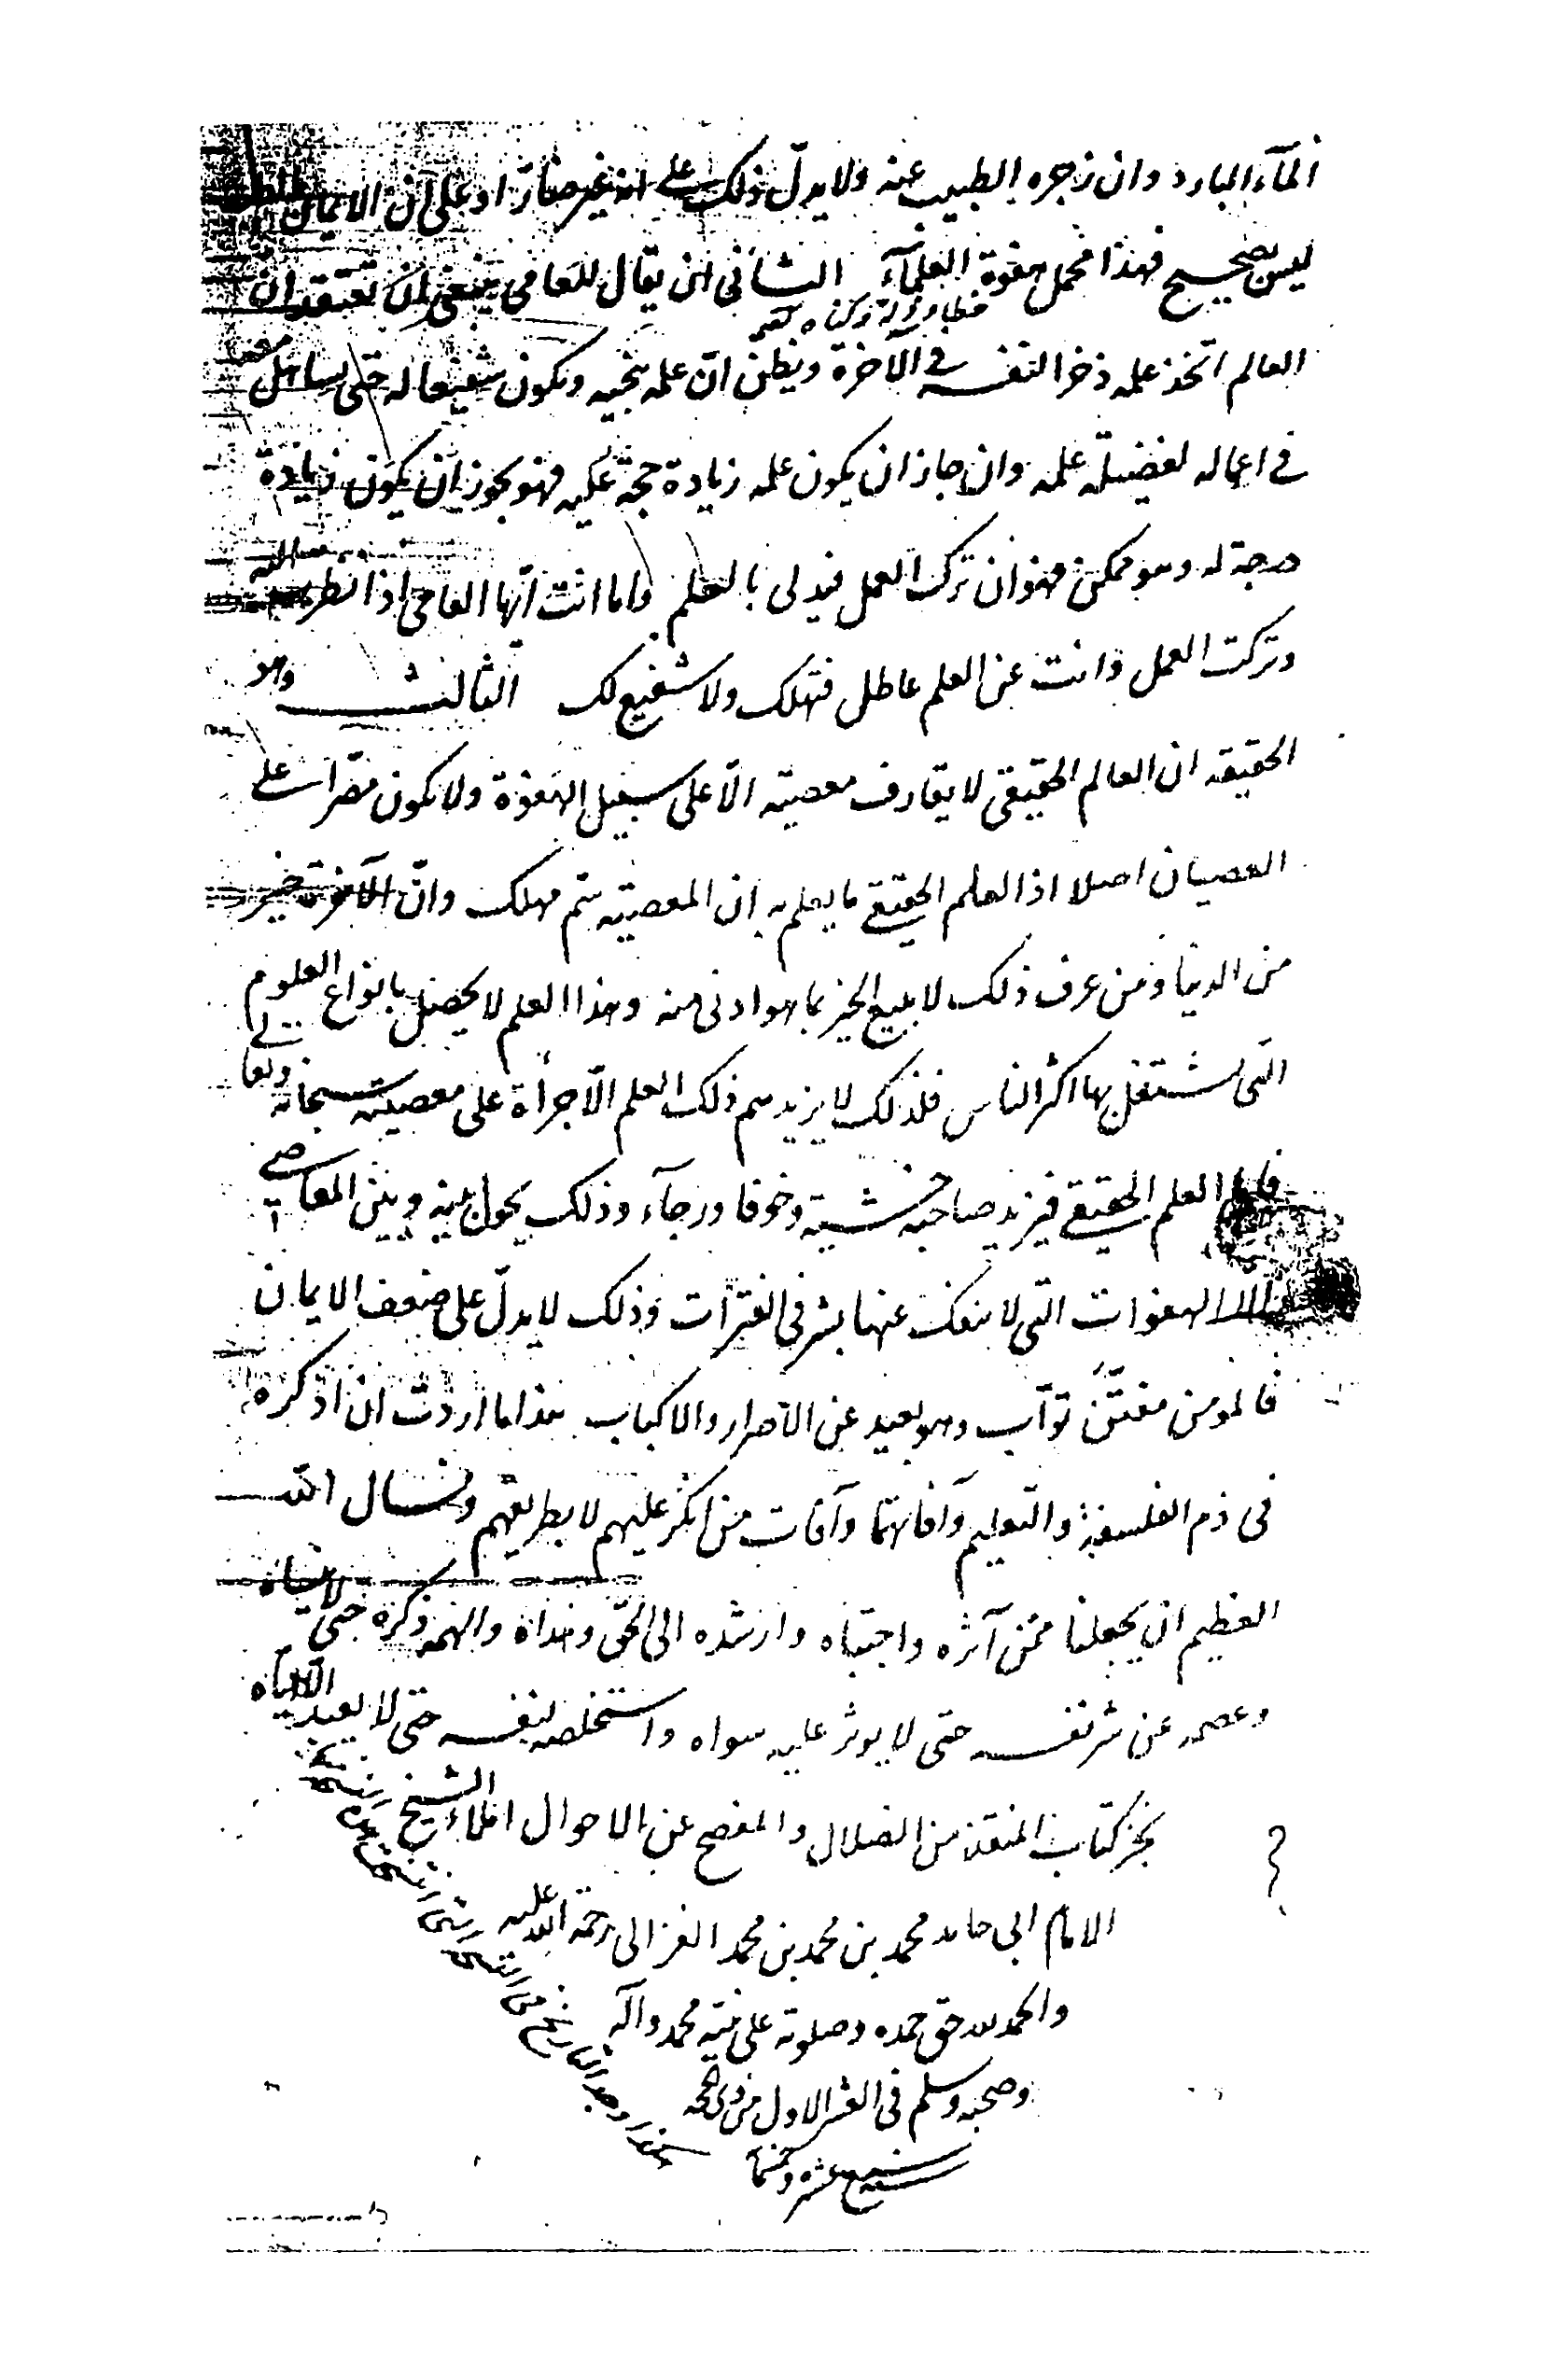 المآء البارد وان زجره الطبيب عنه ولا يدلّ ذلك على انه غير ضارّ او على ان الايمان بالطب
ليس بصحيح فهذا محمل هفوة العلمآء الثانى ان يقال للعامى ينبغى ان تعتقد ان
العالم اتخذ علمه ذخرا لنفسه فى الآخرة ويظن انّ علمه ينجيه ويكون شفيعا له حتى يساهل معه
فى اعماله لفضيلة علمه وان جاز ان يكون علمه زيادة حجة عليه فهو يجوز ان يكون زيادة
درجة له وهو ممكن فهو ان ترك العمل فيدلى بالعلم واما انت ايّها العامى اذا نظرت اليه
وتركت العمل وانت عن العلم عاطل فتهلك ولا شفيع لك الثالث وهو
الحقيقة ان العالم الحقيقى لا يقارف معصية الّا على سبيل الهفوة ولا يكون مصّرا على
العصيان اصلا اذ العلم الحقيقى ما يعلم به ان المعصية سّم مهلك وانّ الآخرة خير
من الدنيا ومن عرف ذلك لا يبيع الخير بما هو ادنى منه وهذا العلم لا يحصل بانواع العلوم
التى يشتغل بها اكثر الناس فلذلك لا يزيدهم ذلك العلم الّا جرأة على معصيته سبحانه وتعالى
فاما العلم الحقيقى فيزيد صاحبه خشية وخوفا ورجآء وذلك يحول بينه وبين المعاصى
الا الهفوات التى لا ينفك عنها بشر فى الفترات وذلك لا يدلّ على ضعف الايمان
فالمومن مفتّن توّاب وهو بعيد عن الاصرار والاكباب هذا ما اردت ان اذكره
فى ذم الفلسفة والتعليم وآفاتهما وآفات من انكر عليهم لا بطريقهم ونسال الله
العظيم ان يجعلنا ممّن آثره واجتباه وارشده الى الحق وهداه والهمه ذكره حتى لا ينساه
وعصمه عن شر نفسه حتى لا يوثر عليه سواه واستخلصه لنفسه حتى لا يعبد الّا ايّاه
نجز كتاب المنقذ من الضلال والمفصح عن الاحوال املاء الشيخ
الامام ابى حامد محمد بن محمد بن محمد الغزالى رحمة الله عليه
والحمد لله حق حمده وصلوته على نبيّه محمد وآله
وصحبه وسلم فى العشر الاول من ذى الحجه